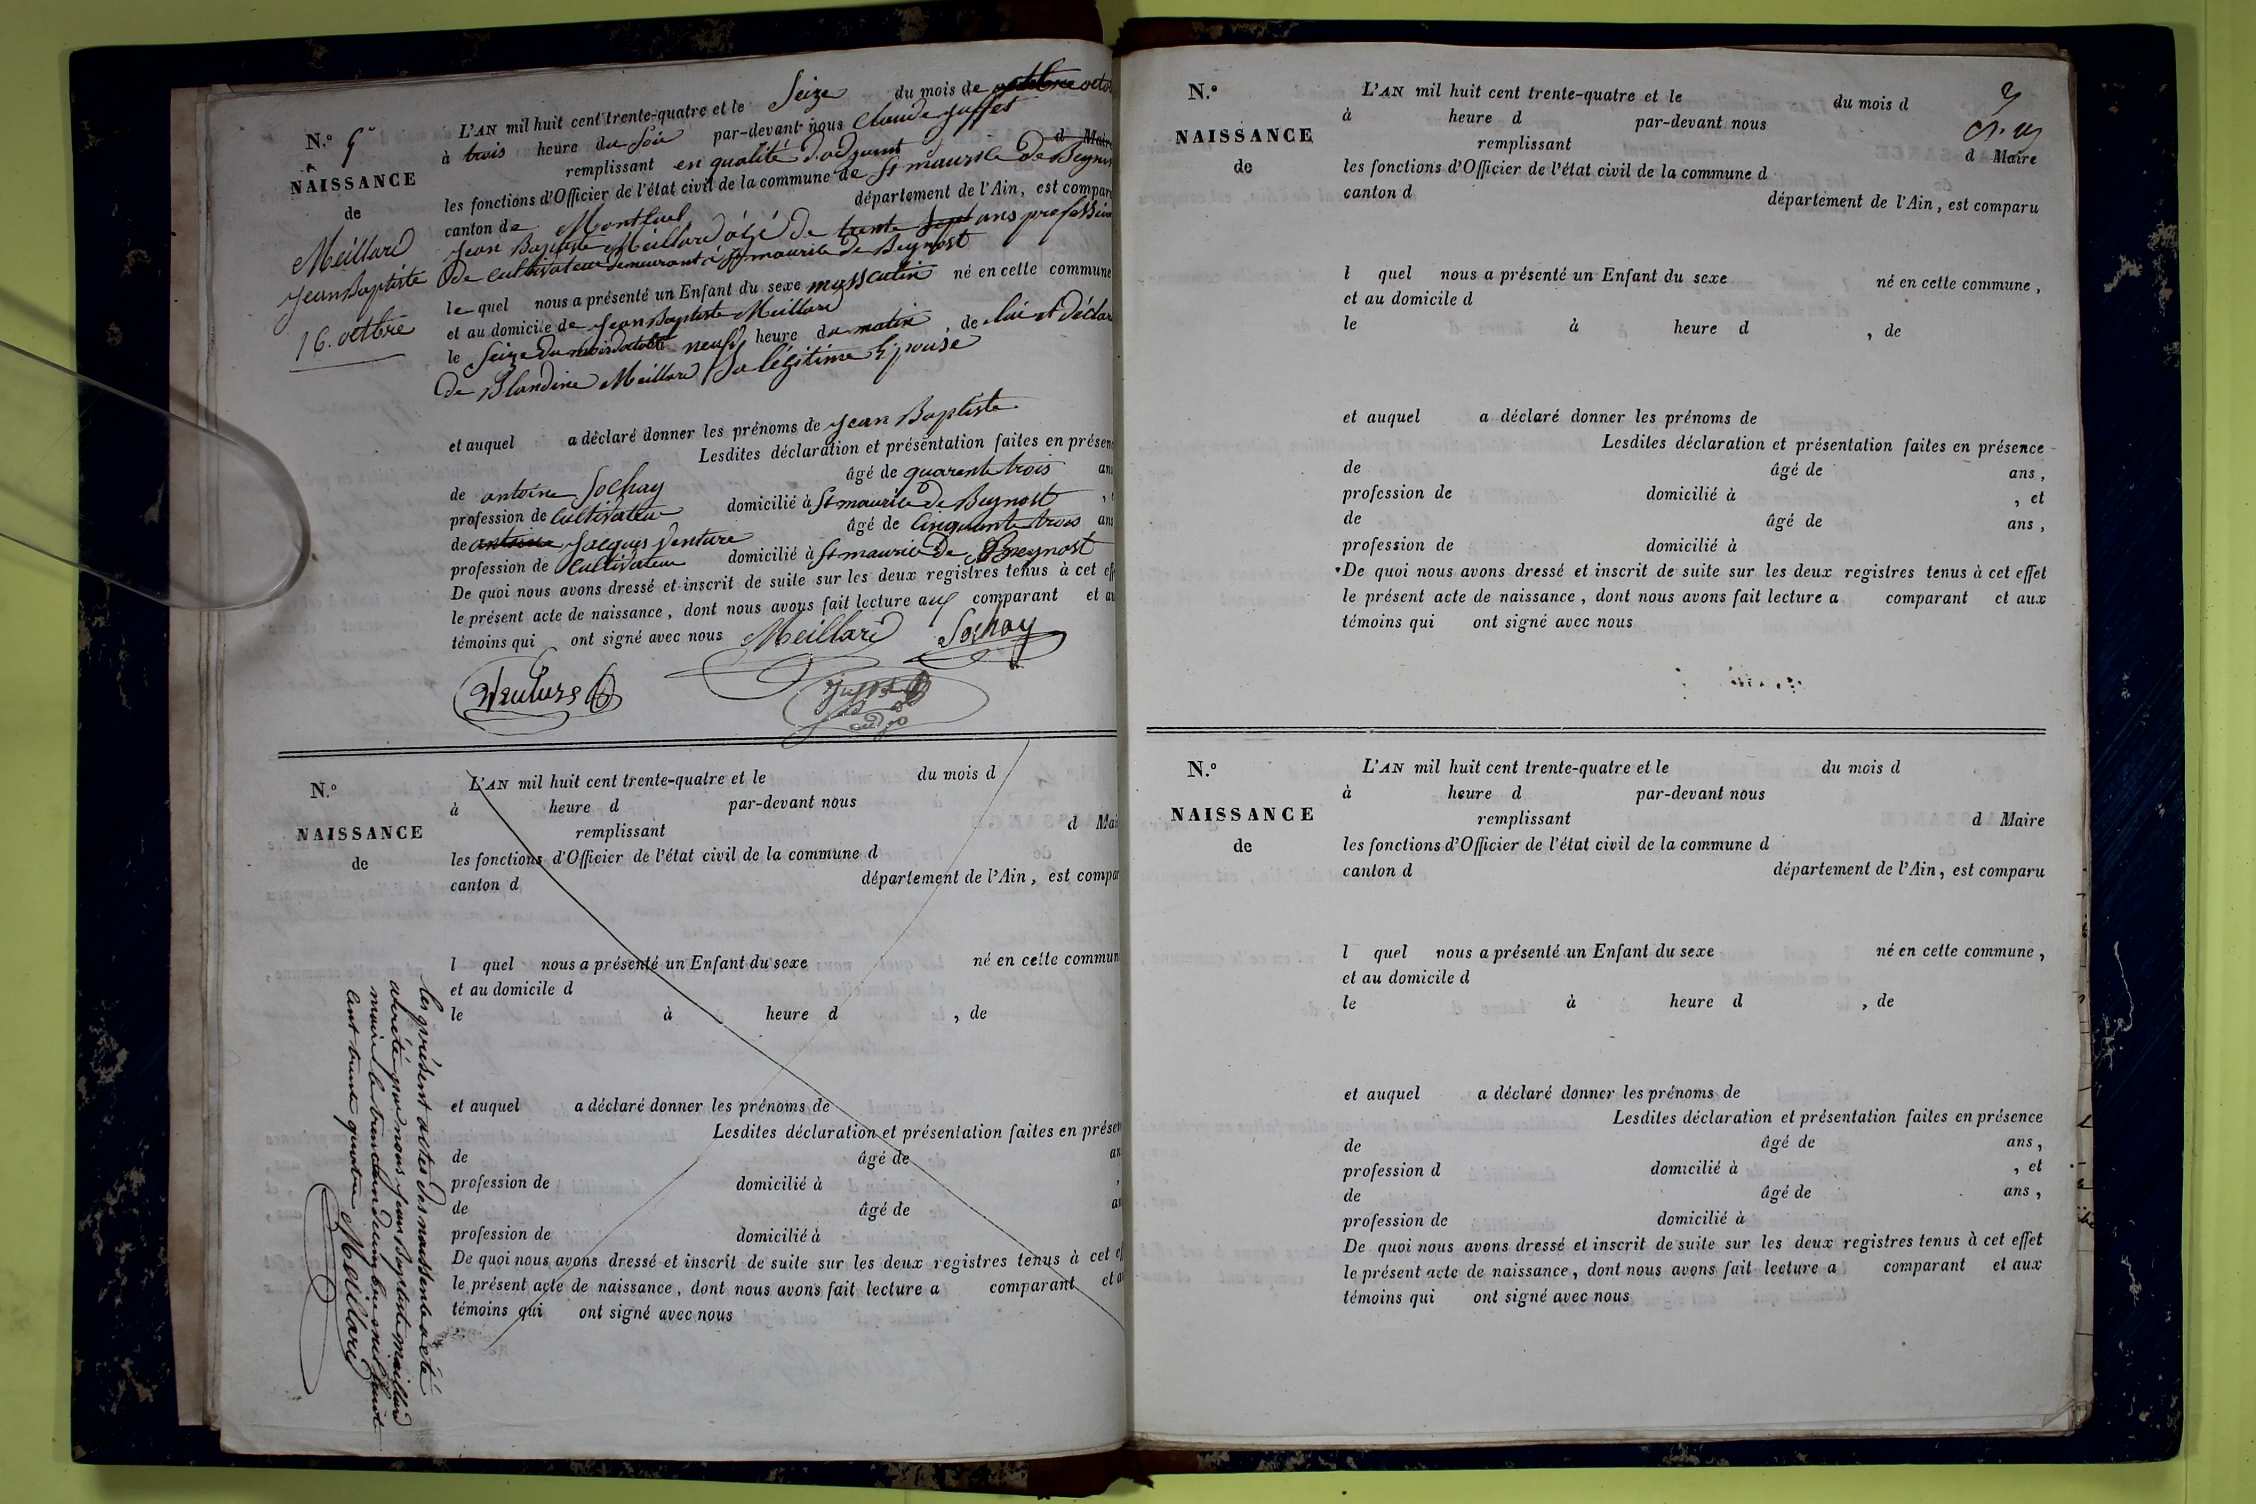 N.º 5
NAISSANCE
de
Meillard
Jean Baptiste
16. octbre
L'AN mil huit cent trente-quatre et le Seize du mois de octo
à trois heure du Soir par-devant nous Claude Juffet
remplissant en qualité d'adjoint d Maire
les fonctions d'Officier de l'état civil de la commune de St maurice De Beynos
canton de Montluel département de l'Ain, est compar
Jean Baptiste Meillard âgé De trente Sept ans profession
De cultivateur Demeurant à St maurice De Beynost
le quel nous a présenté un Enfant du sexe masculin né en cette commune
et au domicile de Jean Baptiste Meillard
le Seize du mois d'octobre neuf heure du matin, de lui et Déclar
de Blandine Meillard Sa légitime Epouse
et auquel a déclaré donner les prénoms de Jean Baptiste
Lesdites déclaration et présentation faites en présen
de antoine Sochay âgé de quarente trois ans
profession de Cultivateur domicilié à St maurice De Beynost
de antoine Jacques Venture âgé de Cinquante trois ans
profession de Cultivateur domicilié à St maurice De Beeynost
De quoi nous avons dressé et inscrit de suite sur les deux registres tenus à cet eff
le présent acte de naissance, dont nous avons fait lecture aux comparant et au
témoins qui ont signé avec nous Meillard Sochay
Venture Juffet adjo
N.º
NAISSANCE
de
L'AN mil huit cent trente-quatre et le du mois d
à heure d par-devant nous
remplissant d Mai
les fonctions d'Officier de l'état civil de la commune d
canton d département de l'Ain, est compar
l quel nous a présenté un Enfant du sexe né en cette commun
et au domicile d
le à heure d , de
et auquel a déclaré donner les prénoms de
Lesdites déclaration et présentation faites en présen
de âgé de an
profession de domicilié à ,
de âgé de an
profession de domicilié à
De quoi nous avons dressé et inscrit de suite sur les deux registres tenus à cet ef
le présent acte de naissance, dont nous avons fait lecture a comparant et a
témoins qui ont signé avec nous
les présent actes des naissente a été
areté par nous Jean Baptiste meillard
maire le trente un Decembre mil huit
Cent trente quatre Meillard
N.º
NAISSANCE
de
L'AN mil huit cent trente-quatre et le du mois d
à heure d par-devant nous
remplissant d Maire
les fonctions d'Officier de l'état civil de la commune d
canton d département de l'Ain, est comparu
l quel nous a présenté un Enfant du sexe né en cette commune,
et au domicile d
le à heure d , de
et auquel a déclaré donner les prénoms de
Lesdites déclaration et présentation faites en présence
de âgé de ans,
profession de domicilié à , et
de âgé de ans,
profession de domicilié à
De quoi nous avons dressé et inscrit de suite sur les deux registres tenus à cet effet
le présent acte de naissance, dont nous avons fait lecture a comparant et aux
témoins qui ont signé avec nous
N.º
NAISSANCE
de
L'AN mil huit cent trente-quatre et le du mois d
à heure d par-devant nous
remplissant d Maire
les fonctions d'Officier de l'état civil de la commune d
canton d département de l'Ain, est comparu
l quel nous a présenté un Enfant du sexe né en cette commune,
et au domicile d
le à heure d , de
et auquel a déclaré donner les prénoms de
Lesdites déclaration et présentation faites en présence
de âgé de ans,
profession d domicilié à , et
de âgé de ans,
profession de domicilié à
De quoi nous avons dressé et inscrit de suite sur les deux registres tenus à cet effet
le présent acte de naissance, dont nous avons fait lecture a comparant et aux
témoins qui ont signé avec nous